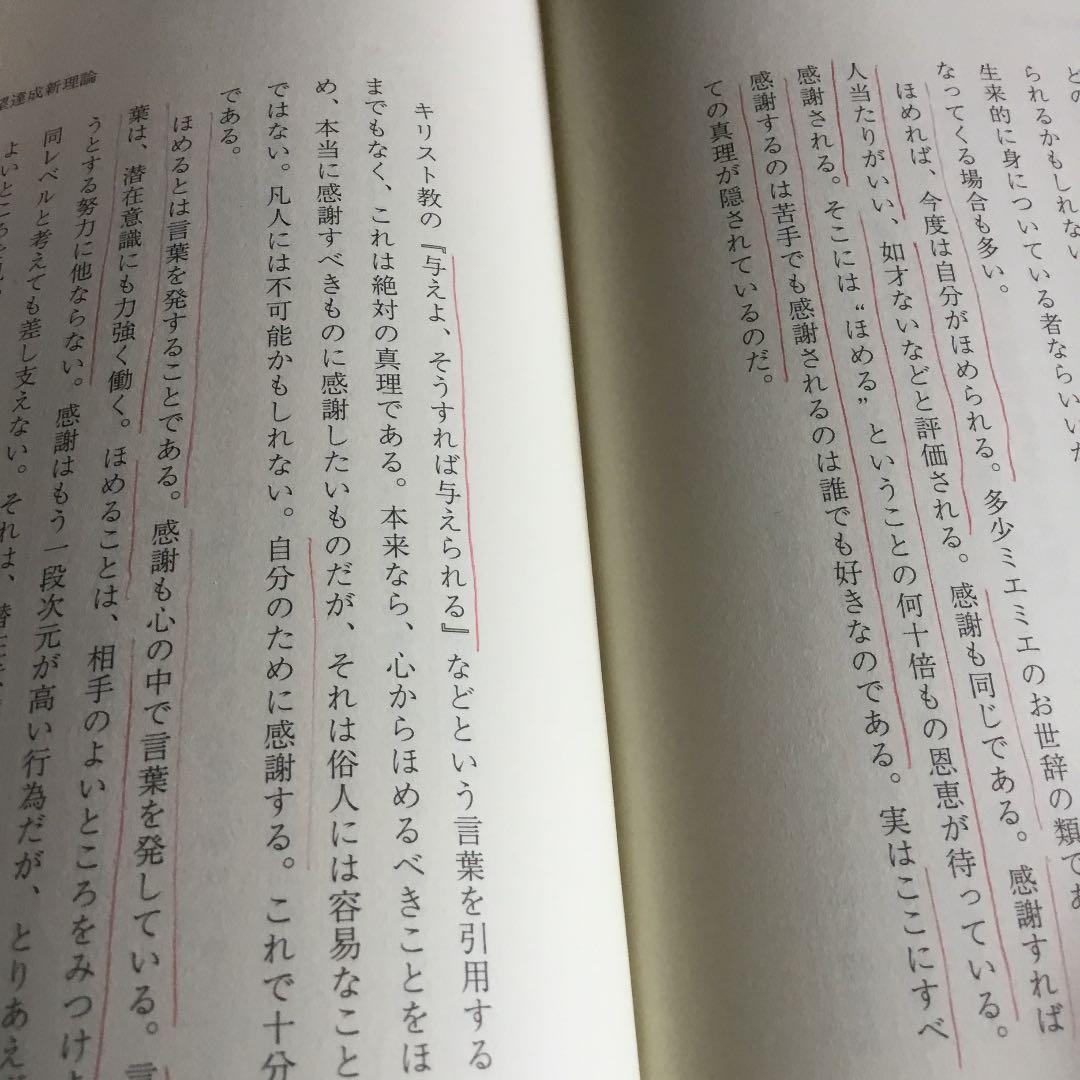 られるかもしれない
生来的に身についている者ならいいた
なってくる場合も多い。
ほめれば、今度は自分がほめられる。多少ミエミエのお世辞の類であ
人当たりがいい、如才ないなどと評価される。感謝も同じである。感謝すれば
感謝される。そこには“ほめる”ということの何十倍もの恩恵が待っている。
感謝するのは苦手でも感謝されるのは誰でも好きなのである。実はここにすべ
ての真理が隠されているのだ。
キリスト教の『与えよ、そうすれば与えられる』などという言葉を引用する
までもなく、これは絶対の真理である。本来なら、心からほめるべきことをほ
め、本当に感謝すべきものに感謝したいものだが、それは俗人には容易なこと
ではない。凡人には不可能かもしれない。自分のために感謝する。これで十分
である。
ほめるとは言葉を発することである。感謝も心の中で言葉を発している。言
葉は、潜在意識にも力強く働く。ほめることは、相手のよいところをみつけよ
うとする努力に他ならない。感謝はもう一段次元が高い行為だが、とりあえ
同レベルと考えても差し支えない。それは、
よいところを
達成新理論